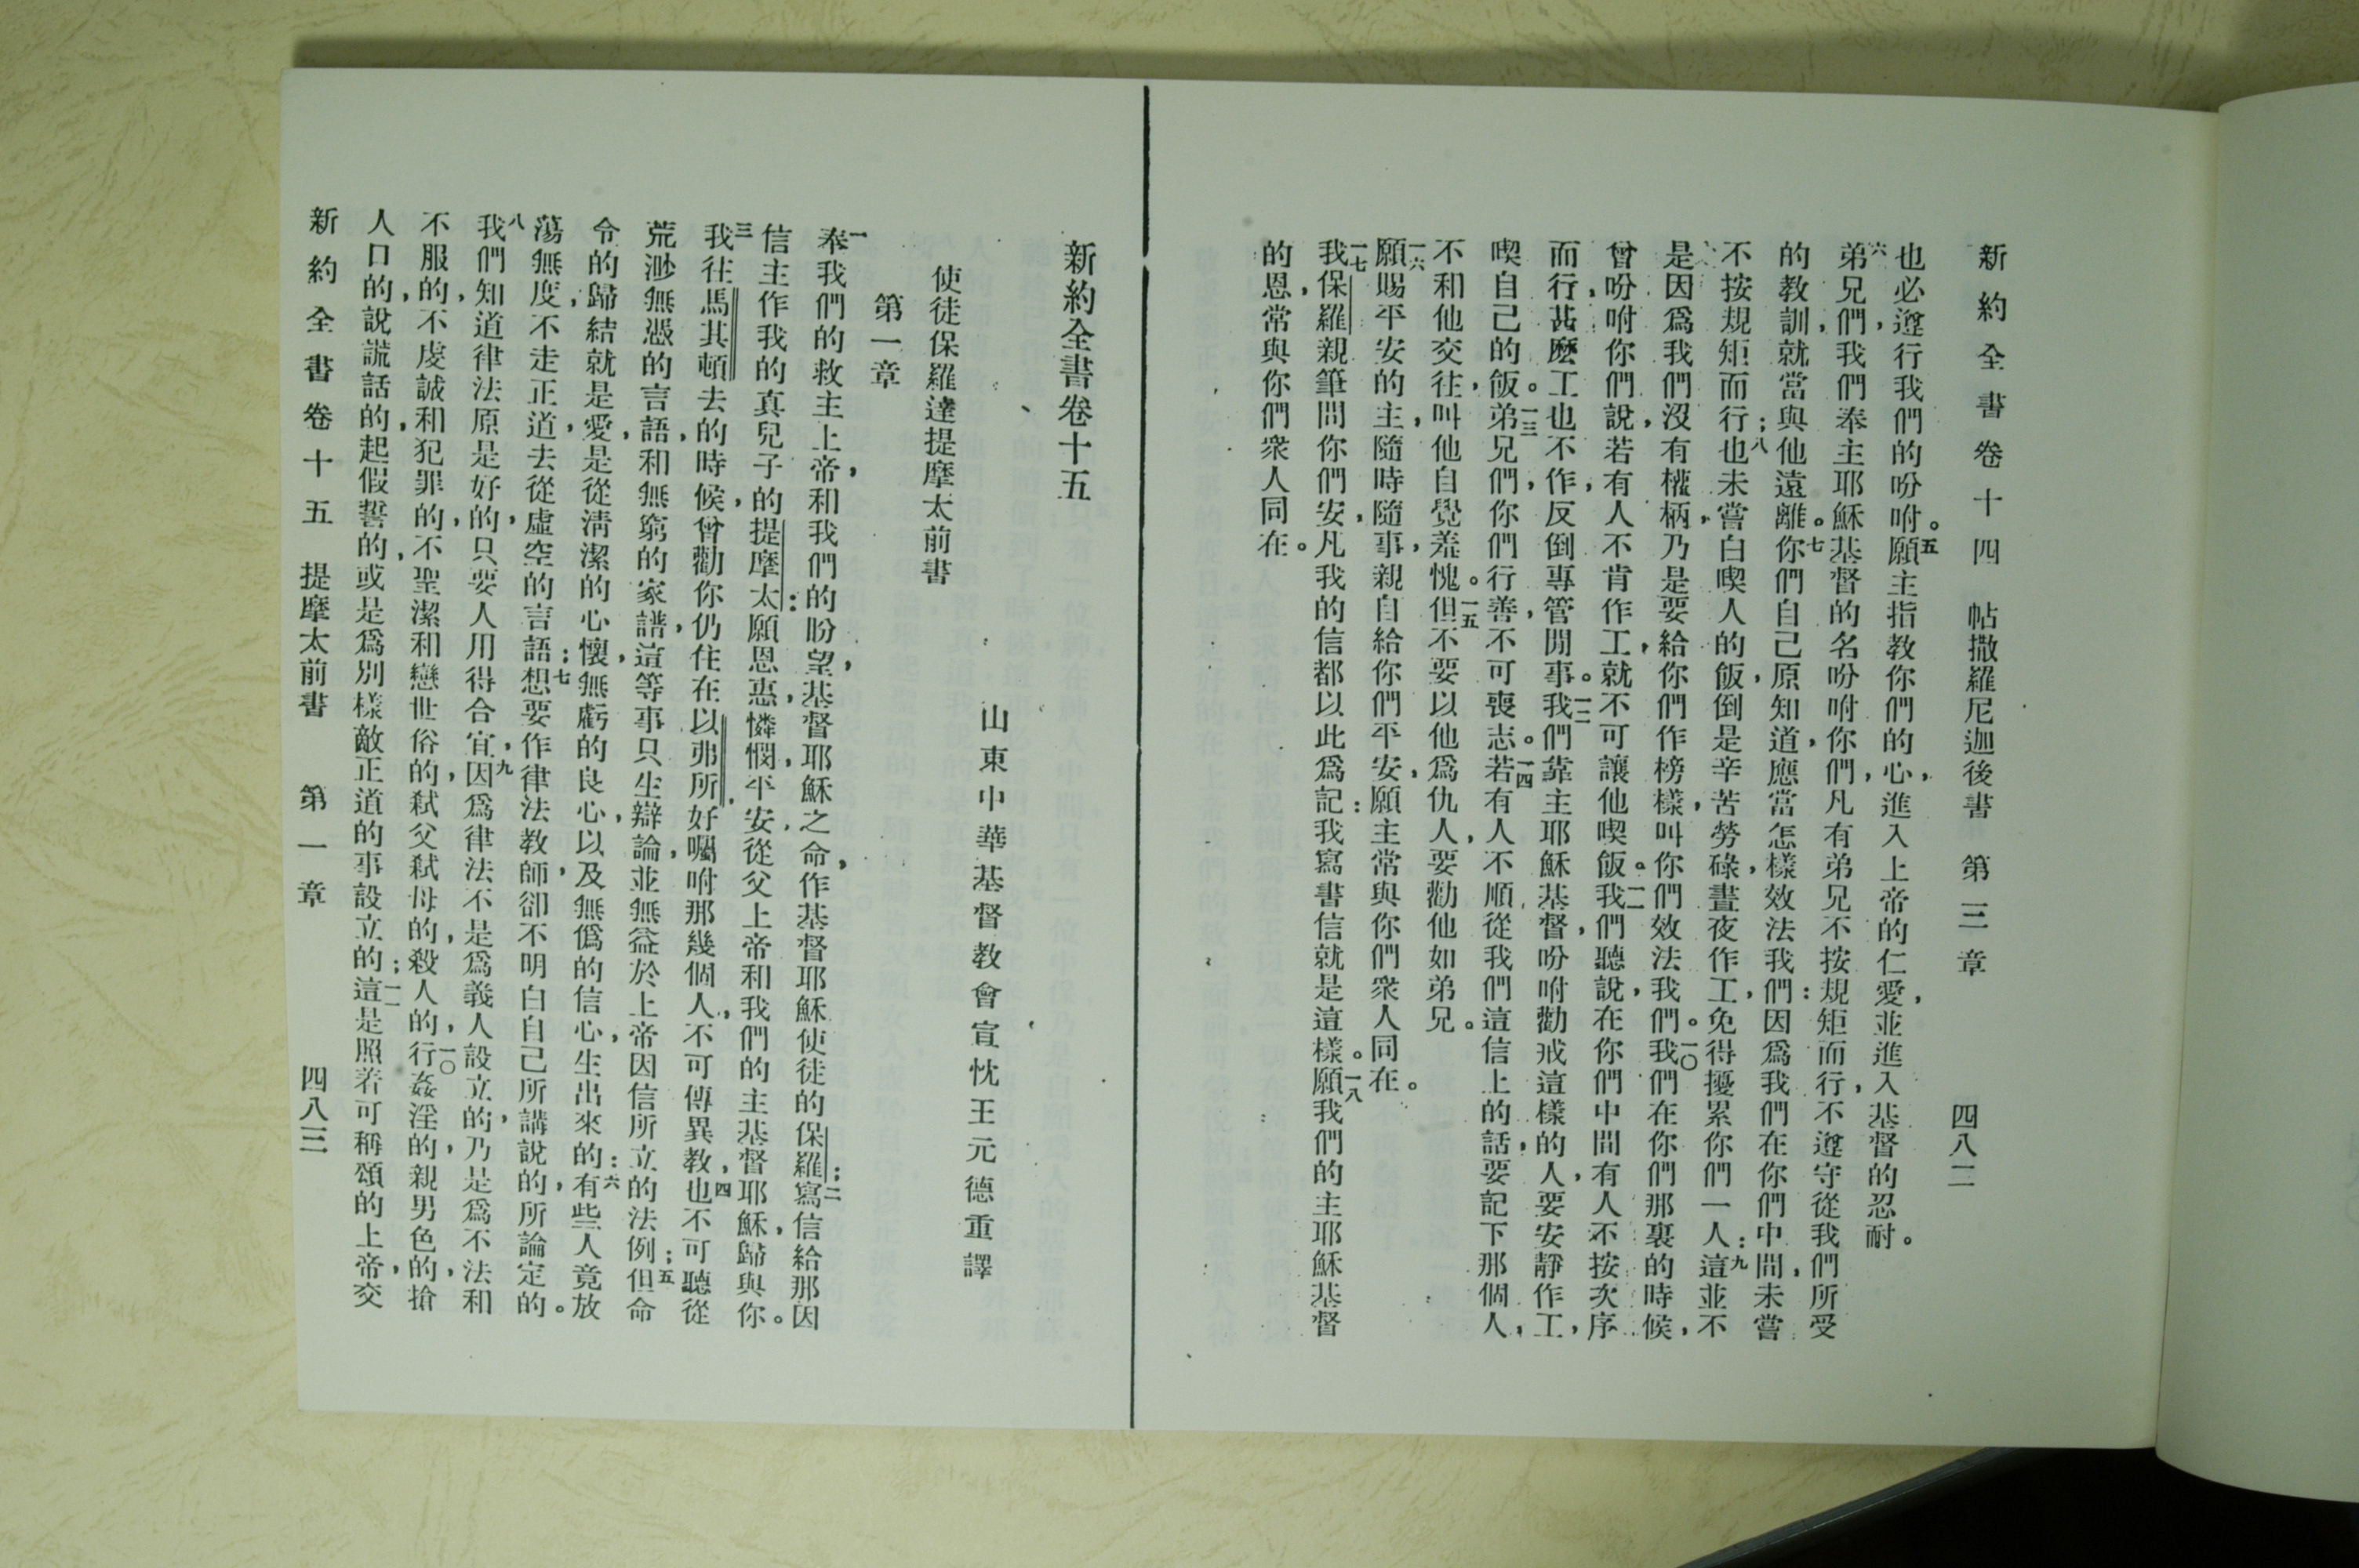 新約全書卷十四 帖撒羅尼迦後書 第三章 四八二
也必遵行我們的吩咐。五願主指教你們的心，進入上帝的仁愛，並進入基督的忍耐。
六弟兄們，我們奉主耶穌基督的名吩咐你們，凡有弟兄不按規矩而行，不遵守從我們所受
的教訓，就當與他遠離。七你們自己原知道，應當怎樣效法我們：因爲我們在你們中間，未嘗
不按規矩而行；八也未嘗白喫人的飯，倒是辛苦勞碌，晝夜作工，免得擾累你們一人：九這並不
是因爲我們沒有權柄，乃是要給你們作榜樣，叫你們效法我們。一〇我們在你們那裏的時候，
曾吩咐你們說，若有人不肯作工，就不可讓他喫飯。一一我們聽說，在你們中間有人不按次序
而行，甚麼工也不作，反倒專管閒事。一二我們靠主耶穌基督，吩咐勸戒這樣的人，要安靜作工，
喫自己的飯。一三弟兄們，你們行善，不可喪志。一四若有人不順從我們這信上的話，要記下那個人，
不和他交往，叫他自覺羞愧。一五但不要以他爲仇人，要勸他如弟兄。
一六願賜平安的主，隨時隨事，親自給你們平安，願主常與你們衆人同在。
一七我保羅親筆問你們安，凡我的信都以此爲記：我寫書信就是這樣。一八願我們的主耶穌基督
的恩，常與你們衆人同在。
新約全書卷十五
山東中華基督教會宣忱王元德重譯
使徒保羅達提摩太前書
第一章
一奉我們的救主上帝，和我們的盼望，基督耶穌之命，作基督耶穌使徒的保羅；二寫信給那因
信主作我的真兒子的提摩太：願恩惠，憐憫，平安，從父上帝和我們的主基督耶穌，歸與你。
三我往馬其頓去的時候，曾勸你仍住在以弗所，好囑咐那幾個人，不可傳異教，四也不可聽從
荒渺無憑的言語，和無窮的家譜，這等事只生辯論，並無益於上帝因信所立的法例；五但命
令的歸結就是愛，是從淸潔的心懷，無虧的良心，以及無僞的信心，生出來的：六有些人竟放
蕩無度，不走正道，去從虛空的言語；七想要作律法教師，卻不明白自己所講說的，所論定的。
八我們知道律法原是好的，只要人用得合宜，九因爲律法不是爲義人設立的，乃是爲不法和
不服的，不虔誠和犯罪的，不聖潔和戀世俗的，弒父弒母的，殺人的，一〇行姦淫的，親男色的，搶
人口的，說謊話的，起假誓的，或是爲別樣敵正道的事設立的；一一這是照着可稱頌的上帝，交
新約全書卷十五 提摩太前書 第一章 四八三